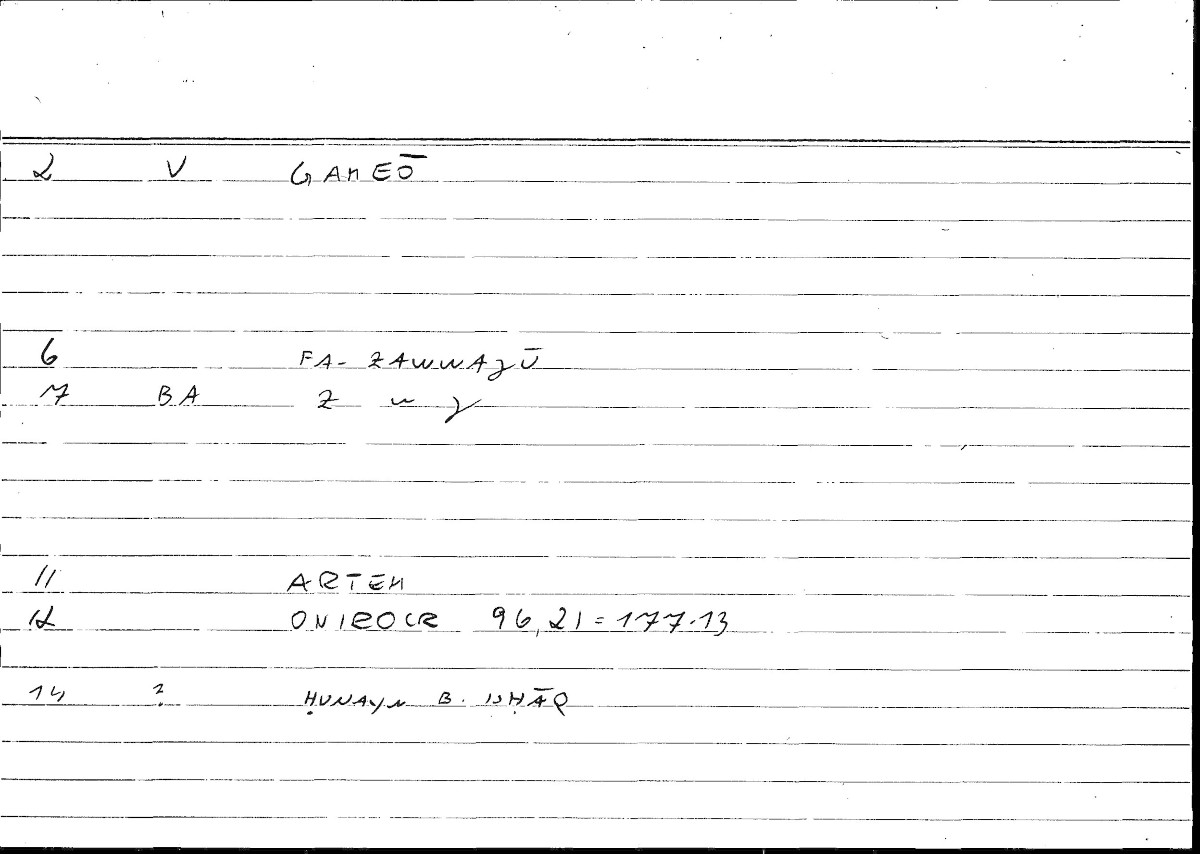 2 V GAMEŌ
6 FA-ZAWWAJŪ
7 BA Z w J
11 ARTEM
12 ONIROCR 96,21=177.13
14 ? ḤUNAYN B. ISḤĀQ